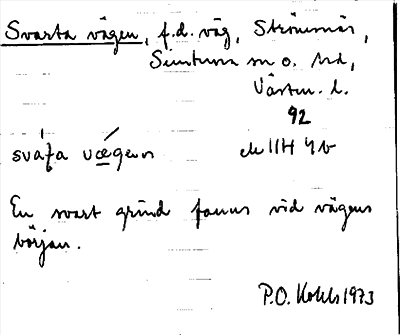 Svarta vägen, f.d. väg, Strömsnäs,
Simtuna sn o. hd,
Västm. l.
92
sváʈa vǽgen ek 11H 4b
En svart grind fanns vid vägens
början.
P.O. Kohls 1973